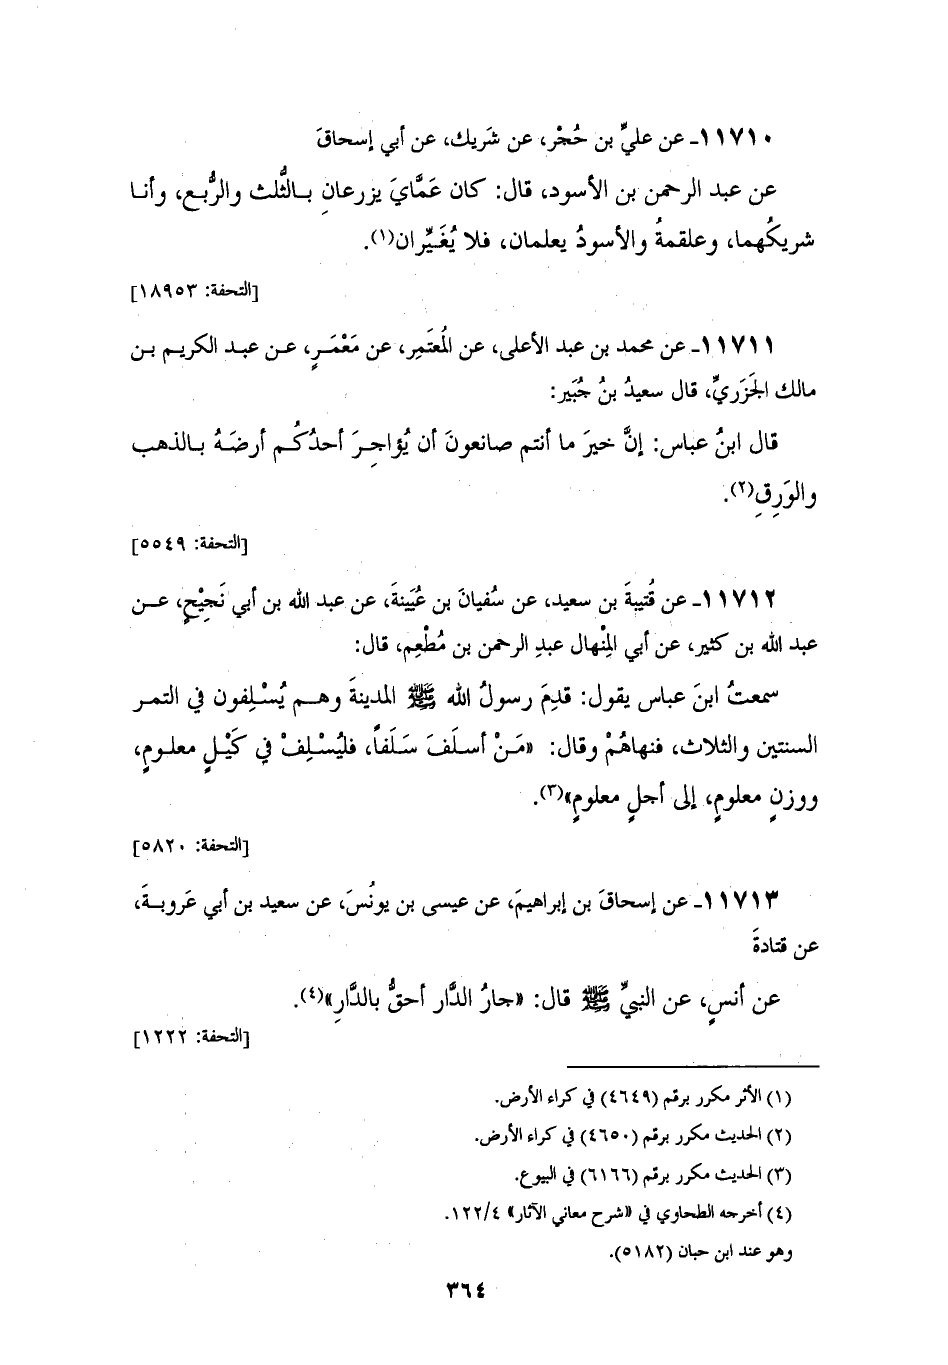 ١١٧١٠ـ عن عليِّ بن حُجْر، عن شَريك، عن أبي إسحاقَ
عن عبد الرحمن بن الأسود، قال: كان عَمَّايَ يزرعانِ بالثُّلث والرُّبع، وأنا
شريكُهما، وعلقمةُ والأسودُ يعلمان، فلا يُغَيِّران(١).
[التحفة: ١٨٩٥٣]
١١٧١١ـ عن محمد بن عبد الأعلى، عن المُعتَمِر، عن مَعْمَرٍ، عن عبد الكريم بن
مالك الجَزَريِّ، قال سعيدُ بنُ جُبَير:
قال ابنُ عباس: إنَّ خيرَ ما أنتم صانعونَ أن يُؤاجِرَ أحدُكُم أرضَهُ بالذهب
والوَرِقِ(٢).
[التحفة: ٥٥٤٩]
١١٧١٢ـ عن قُتيبةَ بن سعيد، عن سُفيانَ بن عُيَينةَ، عن عبد الله بن أبي نَجِيْحٍ، عن
عبد الله بن كثير، عن أبي المِنْهال عبدِ الرحمن بن مُطْعِم، قال:
سمعتُ ابنَ عباس يقول: قدِمَ رسولُ الله ﷺ المدينةَ وهم يُسْلِفون في التمر
السنتين والثلاث، فنهاهُمْ وقال: «مَنْ أسلَفَ سَلَفاً، فليُسْلِفْ في كَيْلٍ معلومٍ،
ووزنٍ معلومٍ، إلى أجلٍ معلومٍ»(٣).
[التحفة: ٥٨٢٠]
١١٧١٣ـ عن إسحاقَ بن إبراهيمَ، عن عيسى بن يونُسَ، عن سعيد بن أبي عَروبةَ،
عن قتادةَ
عن أنسٍ، عن النبيِّ ﷺ قال: «جارُ الدَّار أحقُّ بالدَّارِ»(٤).
[التحفة: ١٢٢٢]
(١) الأثر مكرر برقم (٤٦٤٩) في كراء الأرض.
(٢) الحديث مكرر برقم (٤٦٥٠) في كراء الأرض.
(٣) الحديث مكرر برقم (٦١٦٦) في البيوع.
(٤) أخرجه الطحاوي في «شرح معاني الآثار» ١٢٢/٤.
وهو عند ابن حبان (٥١٨٢).
٣٦٤